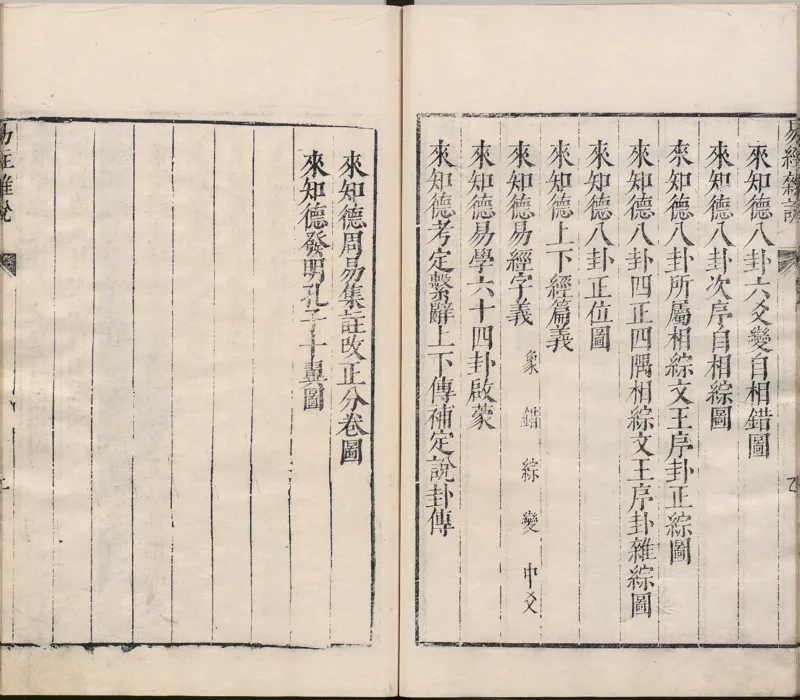 易經雜說
來知德八卦六爻變自相錯圖
來知德八卦次序自相綜圖
來知德八卦所屬相綜文王序卦正綜圖
來知德八卦四正四隅相綜文王序卦雜綜圖
來知德八卦正位圖
來知德上下經篇義
來知德易經字義 象 錯 綜 變 中爻
來知德易學六十四卦啟蒙
來知德考定繫辭上下傳補定說卦傳
來知德周易集註改正分卷圖
來知德發明孔子十翼圖